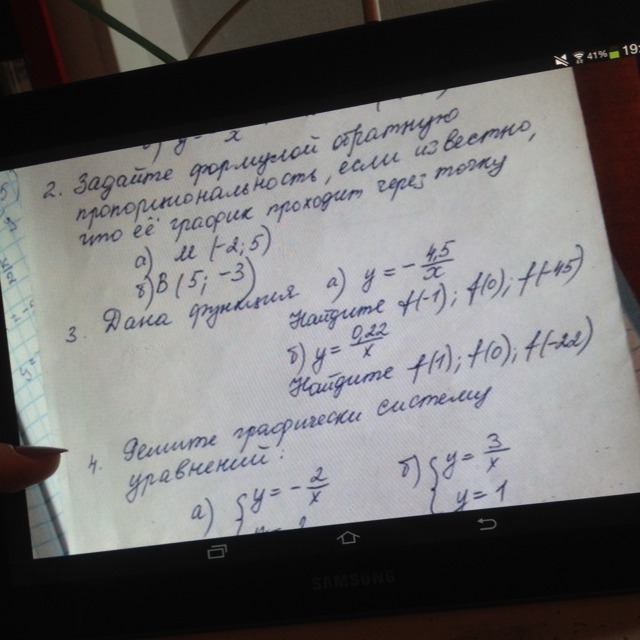 41% 19:
б) y = x
5)
2. Задайте формулой обратную
пропорциональность, если известно,
что её график проходит через точку
а) M (-2; 5)
б) B (5; -3)
3. Дана функция а) y = - 4,5/x
Найдите f(-1); f(0); f(-45)
б) y = 0,22/x
Найдите f(1); f(0); f(-22)
4. Решите графически систему
уравнений:
а) { y = - 2/x
б) { y = 3/x
y = 1
SAMSUNG